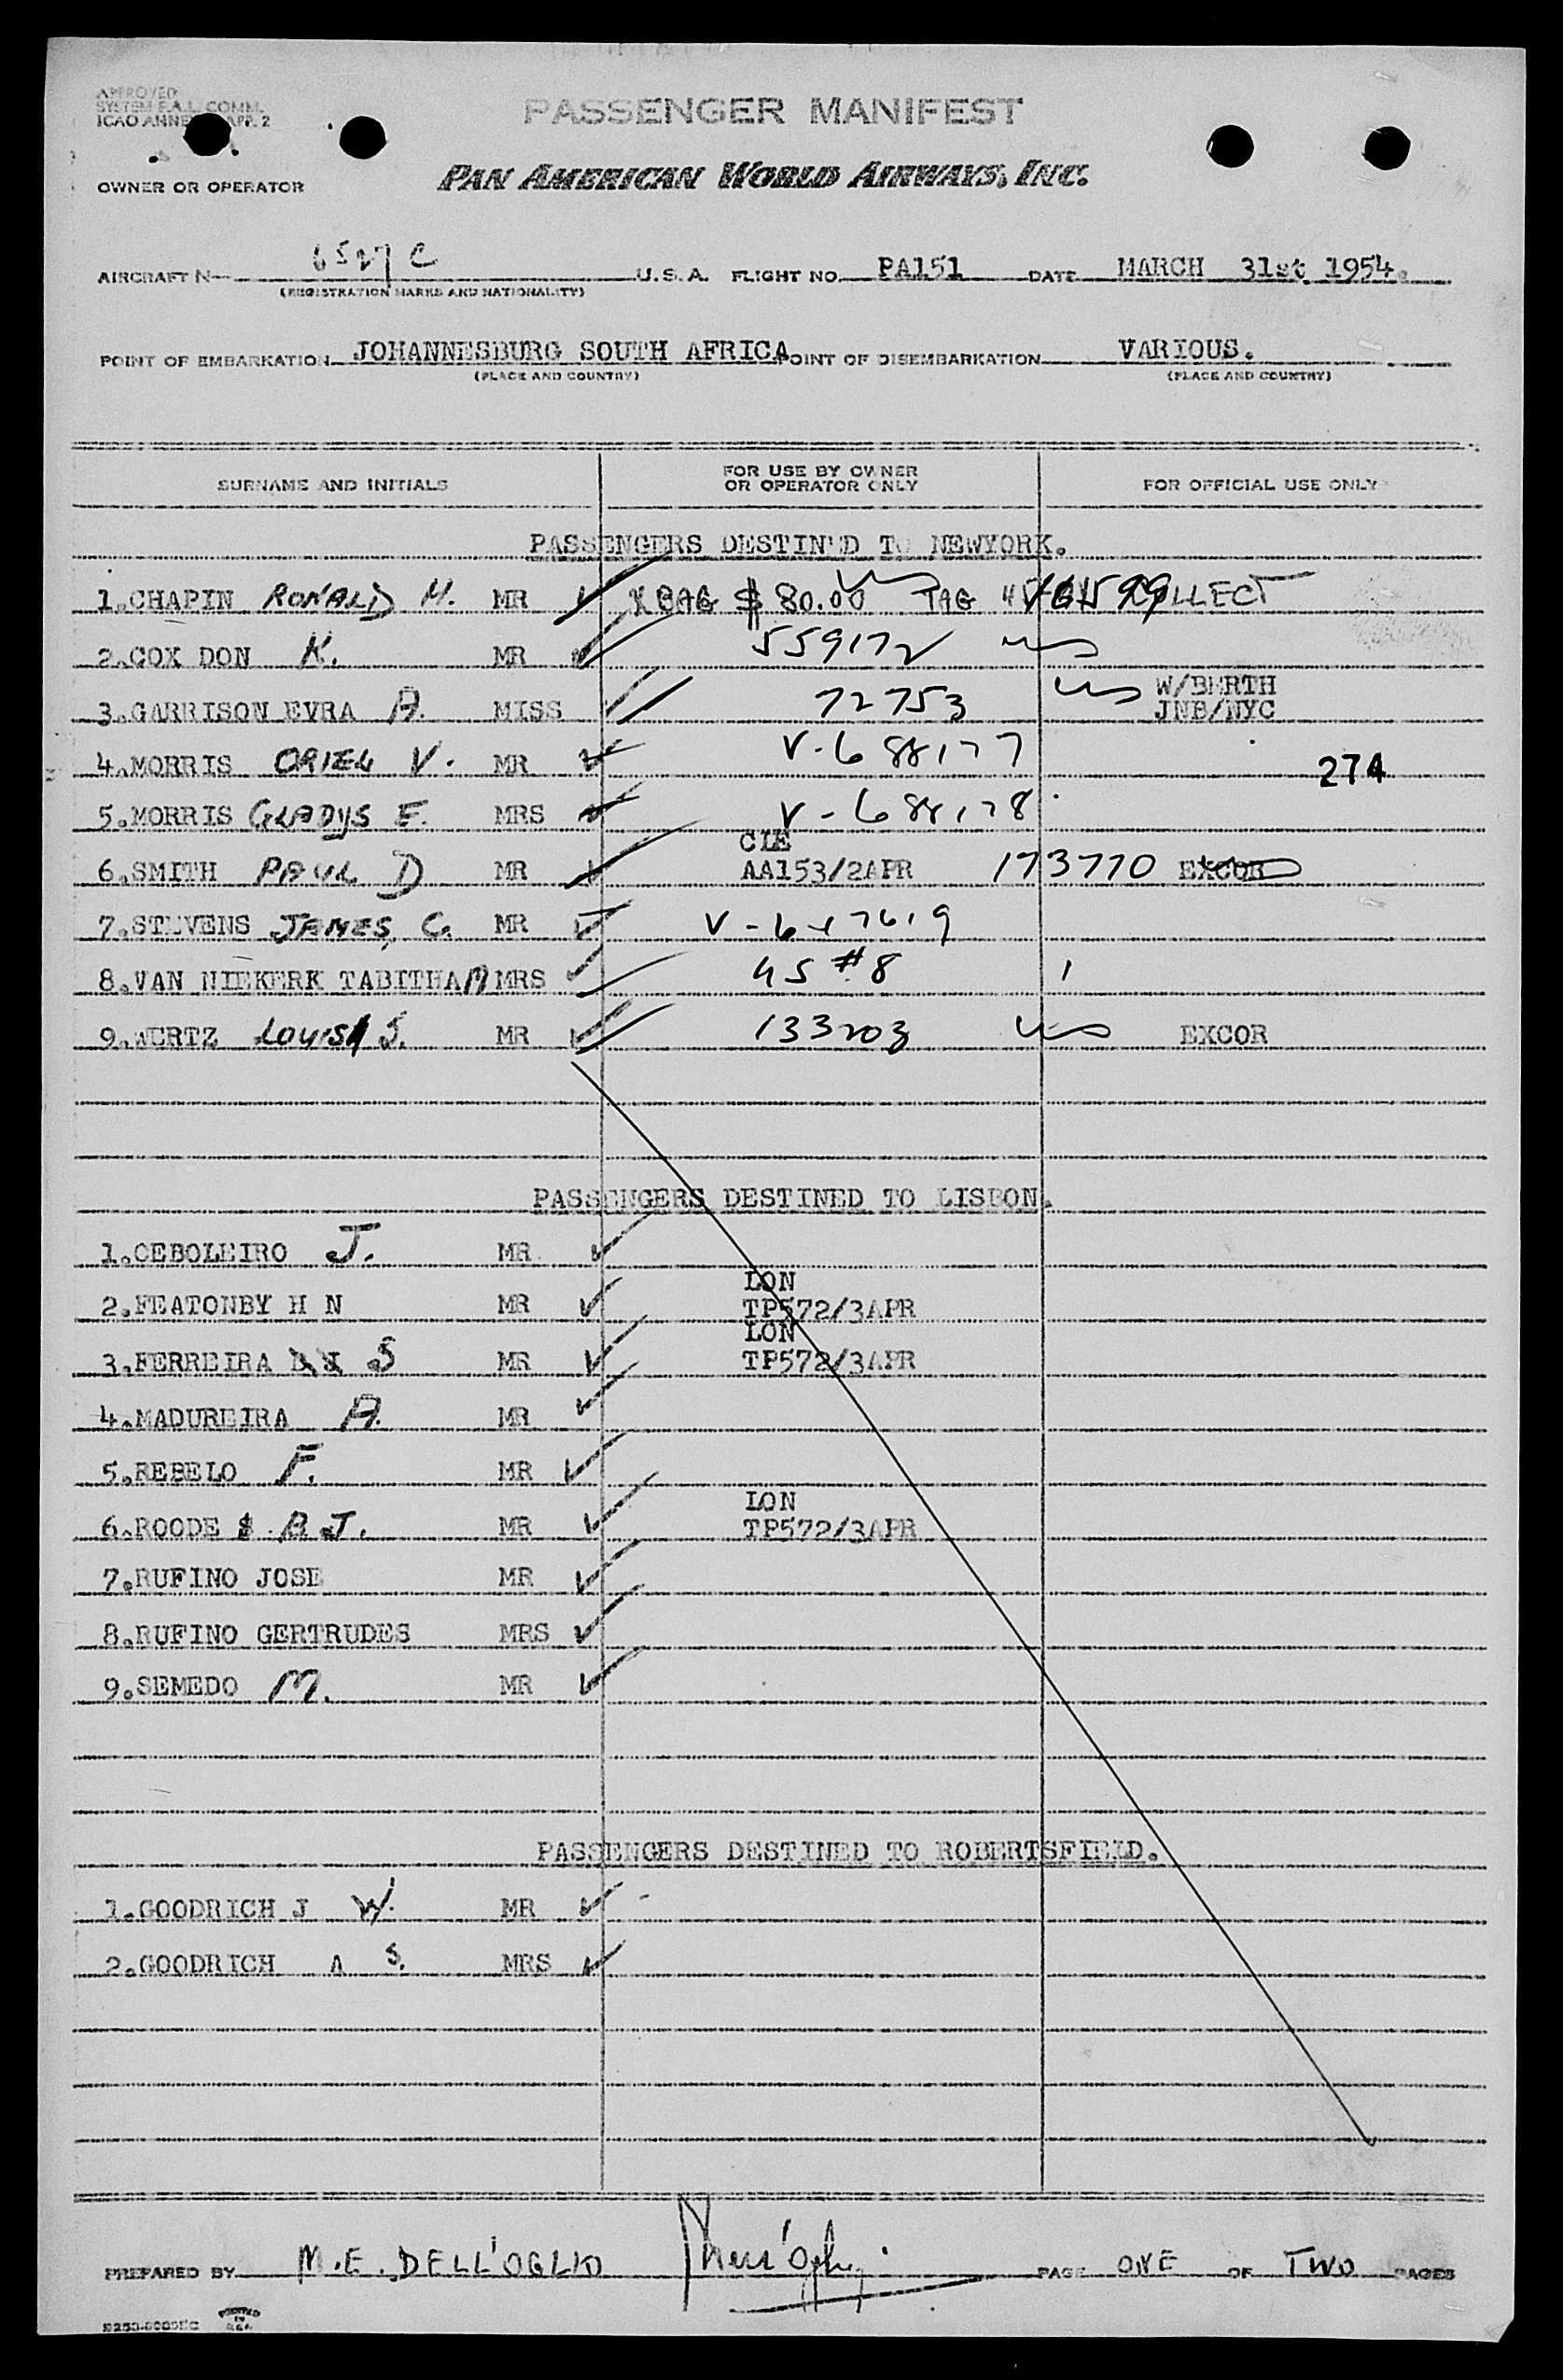 APPROVED
SYSTEM F.A.L. COMM.
ICAO ANNEX APP. 2
PASSENGER MANIFEST
OWNER OR OPERATOR PAN AMERICAN WORLD AIRWAYS, INC.
AIRCRAFT N— 6527 C U.S.A. FLIGHT NO. PA151 DATE MARCH 31st. 1954.
(REGISTRATION MARKS AND NATIONALITY)
POINT OF EMBARKATION JOHANNESBURG SOUTH AFRICA POINT OF DISEMBARKATION VARIOUS.
(PLACE AND COUNTRY) (PLACE AND COUNTRY)
SURNAME AND INITIALS FOR USE BY OWNER OR OPERATOR ONLY FOR OFFICIAL USE ONLY
PASSENGERS DESTINED TO NEWYORK.
1.CHAPIN RONALD M. MR X BAG $ 80.00 TAG COLLECT
2.COX DON K. MR 559172
3.GARRISON EVRA A. MISS 72753 W/BERTH
JNB/NYC
4.MORRIS ORIEL V. MR V-688177 274
5.MORRIS GLADYS E. MRS V-688178
CLE
6.SMITH PAUL D MR AA153/2APR 173770 EXCOR
7.STEVENS JAMES C. MR
8.VAN NIEKERK TABITHA M MRS 45 #8
9.WURTZ LOUIS J. MR 133203 EXCOR
PASSENGERS DESTINED TO LISBON.
1.CEBOLEIRO J. MR
LON
2.FEATONBY H N MR TP572/3APR
LON
3.FERREIRA S MR TP572/3APR
4.MADUREIRA A. MR
5.REBELO F. MR
LON
6.ROODE B J. MR TP572/3APR
7.RUFINO JOSE MR
8.RUFINO GERTRUDES MRS
9.SEMEDO M. MR
PASSENGERS DESTINED TO ROBERTSFIELD.
1.GOODRICH J W. MR
2.GOODRICH A S. MRS
PREPARED BY M.E. DELL'OGLIO PAGE ONE OF TWO PAGES
PRINTED
IN
U.S.A.